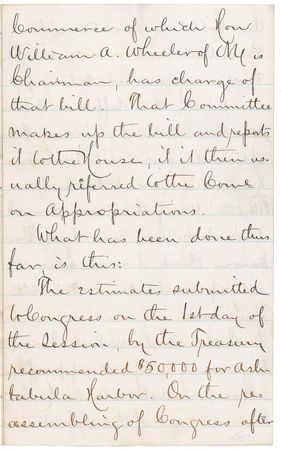 Commerce of which Hon
William A. Wheeler of NY is
Chairman, has charge of
that bill. That Committee
makes up the bill and reports
it to the House, it it then us-
ually referred to the Come
on Appropriations.
What has been done thus
far, is this:
The estimates submitted
to Congress on the 1st day of
the Session, by the Treasury
recommended $50,000 for Ash-
tabula Harbor. On the re-
assembling of Congress after